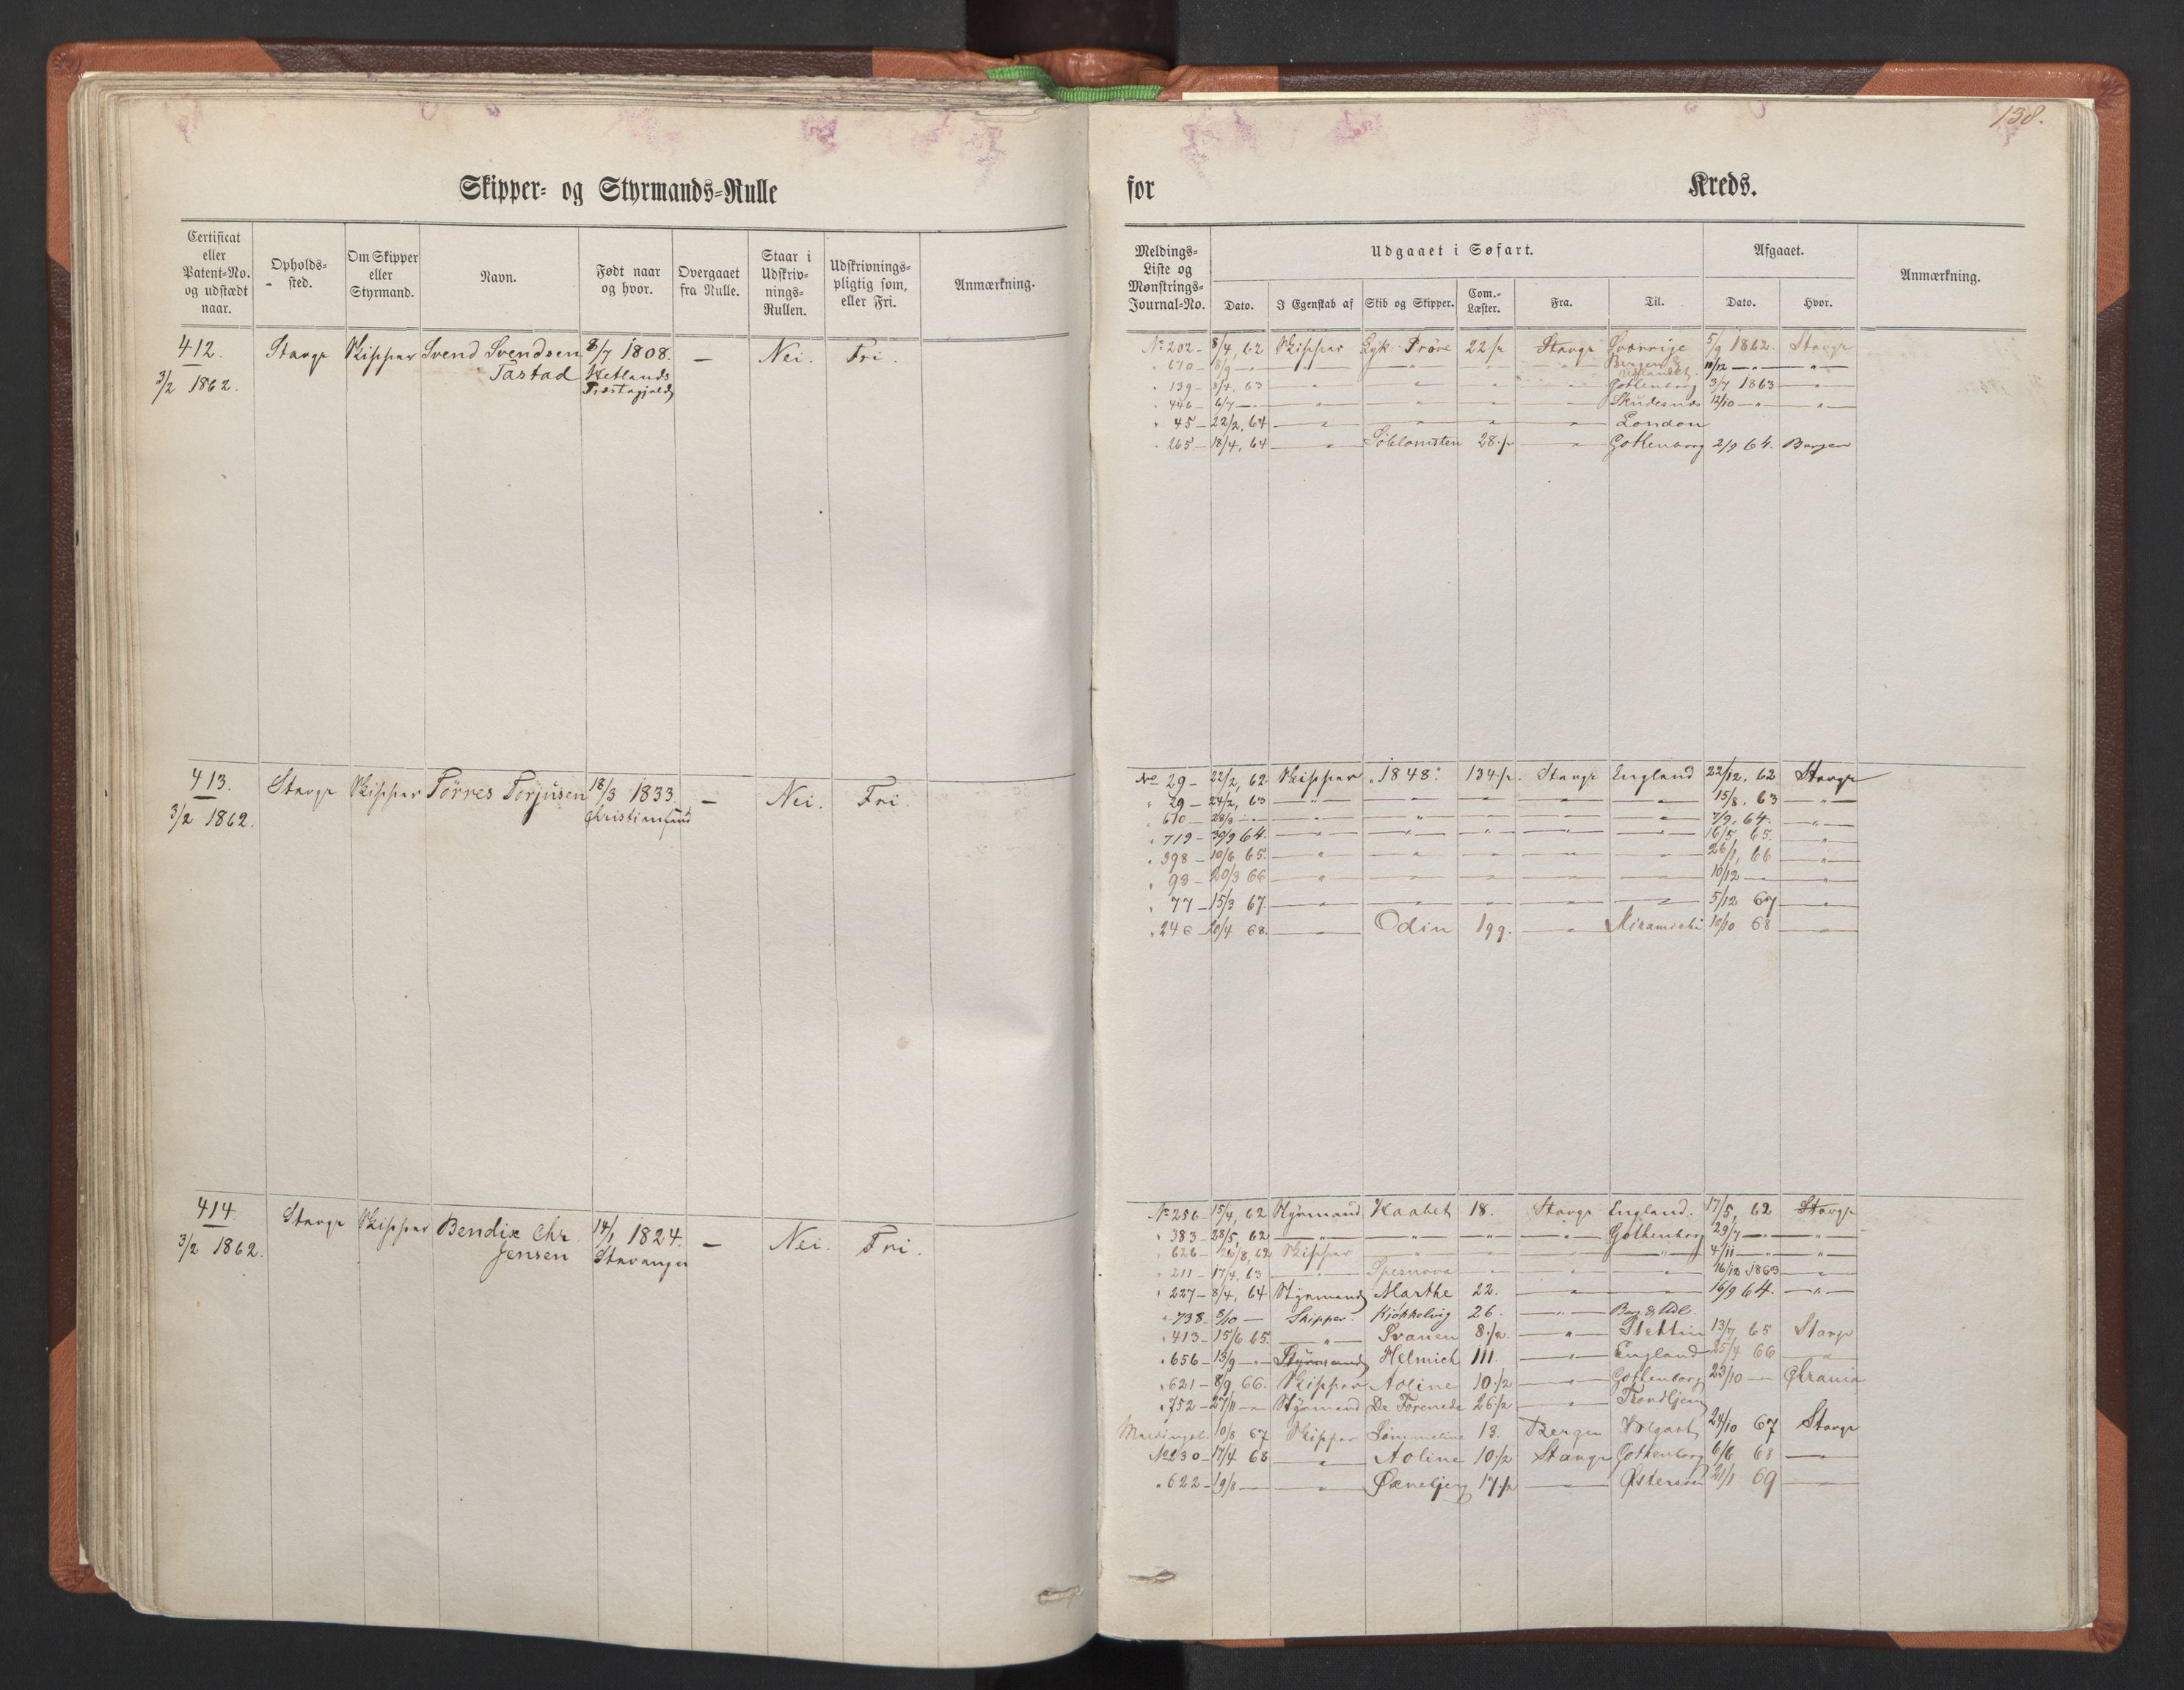 138.
Skipper- og Styrmands-Rulle
for Kreds.
Certificat eller Patent-No. og udstædt naar.
Opholds-sted.
Om Skipper eller Styrmand.
Navn.
Født naar og hvor.
Overgaaet fra Rulle.
Staar i Udskriv-nings-Rullen.
Udskrivnings-pligtig som, eller Fri.
Anmærkning.
Meldings-Liste og Mønstrings-Journal-No.
Udgaaet i Søfart.
Dato.
I Egenskab af
Skib og Skipper.
Com.-Læster.
Fra.
Til.
Afgaaet.
Dato.
Hvor.
Anmærkning.
412. Stavgr Skipper Svend Svendsen 8/7 1808. — Nei. Fri.
3/2 1862. Tastad Hetlands
Præstegjeld
No 202 - 8/4, 62 Skipper Lyk. Prøve 22 ½ Stavgr Sverrige 5/9 1862. Stavgr
" 670 - 8/9 — " — " — " — " Bergen & Udlandet 11/12 — " — "
" 139 - 8/4, 63 — " — " — " — " Gothenborg 3/7 1863 — "
" 446 - 6/7 — " — " — " — " Skudesnæs 12/10 — " — "
" 45 - 22/2, 64 — " — " — " — " London
" 265 - 18/4, 64 — " Søblomsten 28 ½ — " Gothenborg 2/9 64. Bergen
413. Stavgr Skipper Tørres Torjusen 18/3 1833. — Nei. Fri.
3/2 1862. Christiansund
No 29 - 22/2, 62 Skipper "1848" 134 ½. Stavgr England 22/12, 62 Stavgr
" 29 - 24/2, 63 — " — " — " — " — " 15/8, 63 — "
" 610 - 28/8 — " — " — " — " — " 7/9, 64. — "
" 719 - 30/9 64. — " — " — " — " — " 16/5, 65. — "
" 398 - 10/6 65. — " — " — " — " — " 26/1, 66 — "
" 93 - 20/3 66 — " — " — " — " — " 10/12 — " — "
" 77 - 15/3 67. — " — " — " — " — " 5/12 67 — "
" 246 - 20/4 68. — " Odin 199. — " Miramichi 10/10 68 — "
414. Stavgr Skipper Bendix Chr. 14/1 1824. — Nei. Fri.
3/2 1862. Jensen Stavanger
No 256 - 15/4, 62 Styrmand Haabet 18. Stavgr England. 17/5, 62 Stavgr
" 383 - 28/5, 62 — " — " — " — " Gothenborg 29/7 — " — "
" 626 - 26/8, 62 Skipper — " — " — " — " 4/11 — " — "
" 211 - 17/4, 63 — " Spesnova — " — " — " 16/12 1863 — "
" 227 - 8/4, 64 Styrmand Marthe 22. — " — " 16/9 64. — "
" 738 - 8/10 — Skipper. Kjøkkelvig 26. — " Berg & Udl.
" 413 - 15/6 65. — " Svanen 8 ½ — " Stettin 13/7, 65 Stavgr
" 656 - 13/9 — " Styrmand Helmich 111. — " England 25/4 66 — "
" 621 - 8/9, 66. Skipper Aoline 10 ½ — " Gothenborg 23/10 — Chrania
" 752 - 27/11 — Styrmand De Forenede 26 ½ — " Trondhjem
Meldingsl. 10/8 67 Skipper Lømmeline 13. Bergen Wolgast 24/10 67 Stavgr
No 230 - 17/4 68 — " Aoline 10 ½ Stavgr Gothenborg 6/6 68 —
" 622 - 19/8 — " 17 ½ — Østersøen 21/1 69 —